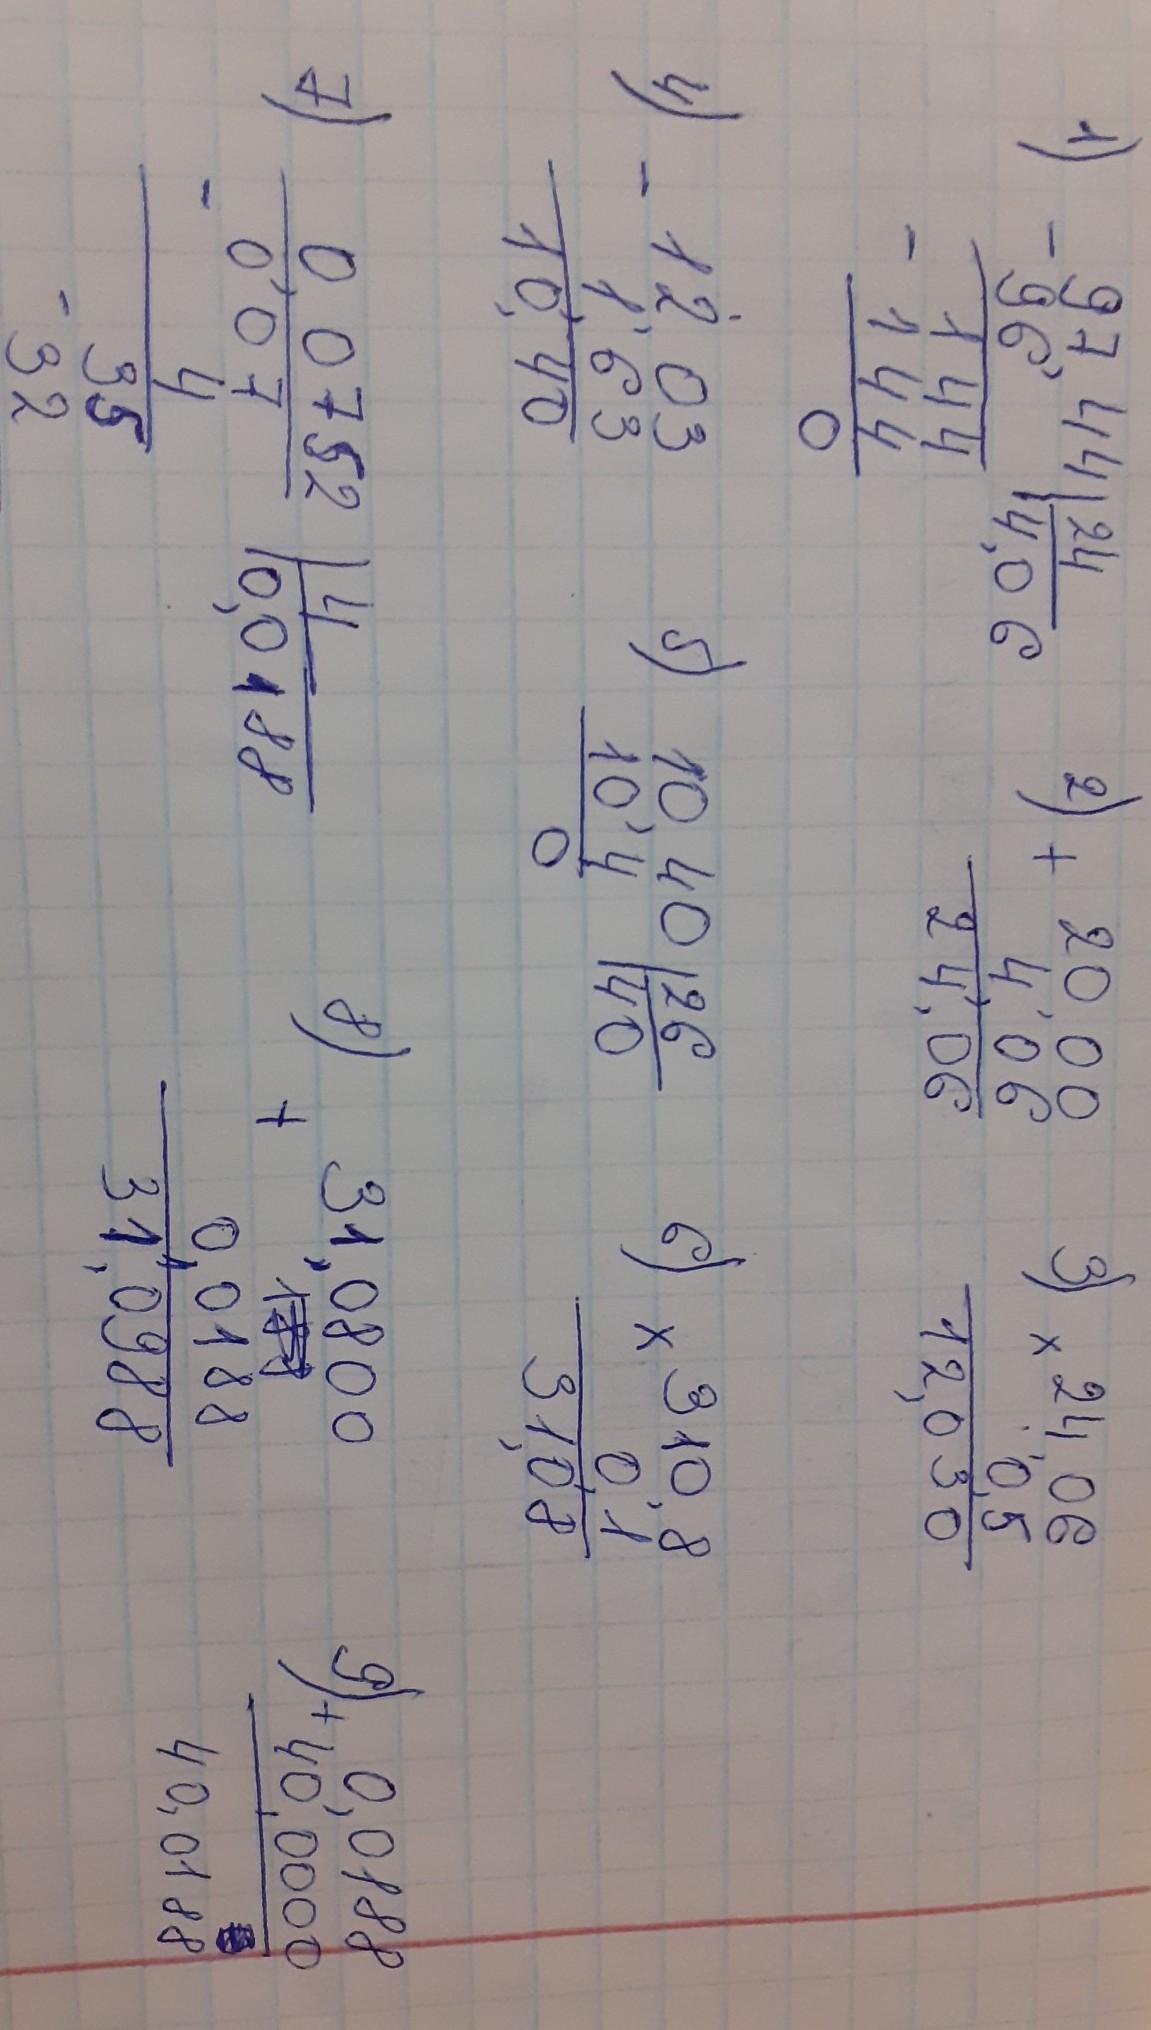 1) - 97,44 | 24
96 | 4,06
144
- 144
0
2) + 20,00
4,06
24,06
3) × 24,06
0,5
12,030
4) - 12,03
1,63
10,40
5) 10,40 | 26
10,4 | 40
0
6) × 310,8
0,1
31,08
7) 0,0752 | 4
0,07 | 0,0188
- 4
35
- 32
8) + 31,0800
0,0188
31,0988
9) + 0,0188
40,0000
40,0188